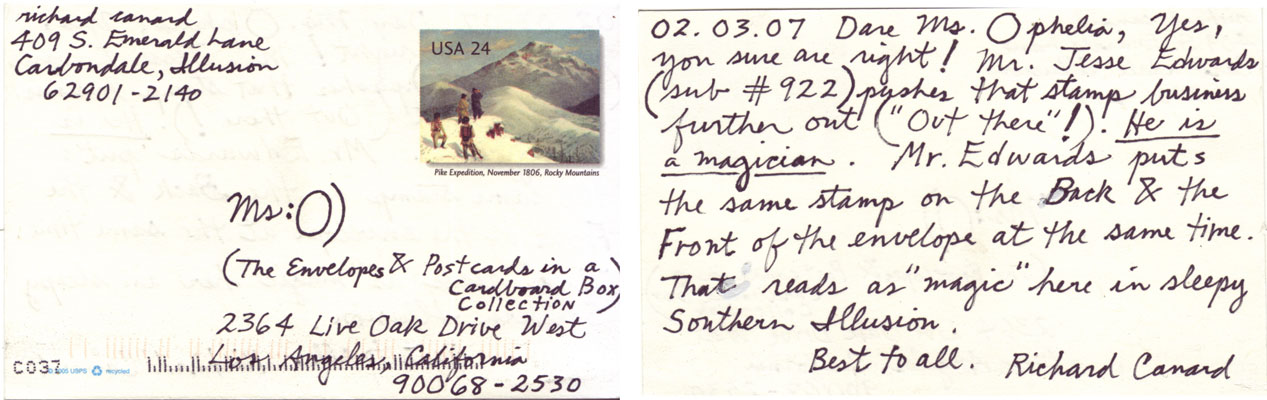 richard canard
409 S. Emerald Lane
Carbondale, Illusion
62901-2140
USA 24
Pike Expedition, November 1806, Rocky Mountains
Ms:O)
(The Envelopes & Postcards in a
Cardboard Box
Collection)
2364 Live Oak Drive West
Los Angeles, California
90068-2530
C031
© 2005 USPS
recycled
02.03.07 Dare Ms. Ophelia, Yes,
you sure are right! Mr. Jesse Edwards
(sub #922) pushes that stamp business
further out ("Out there"!). He is
a magician. Mr. Edwards puts
the same stamp on the Back & the
Front of the envelope at the same time.
That reads as "magic" here in sleepy
Southern Illusion.
Best to all. Richard Canard